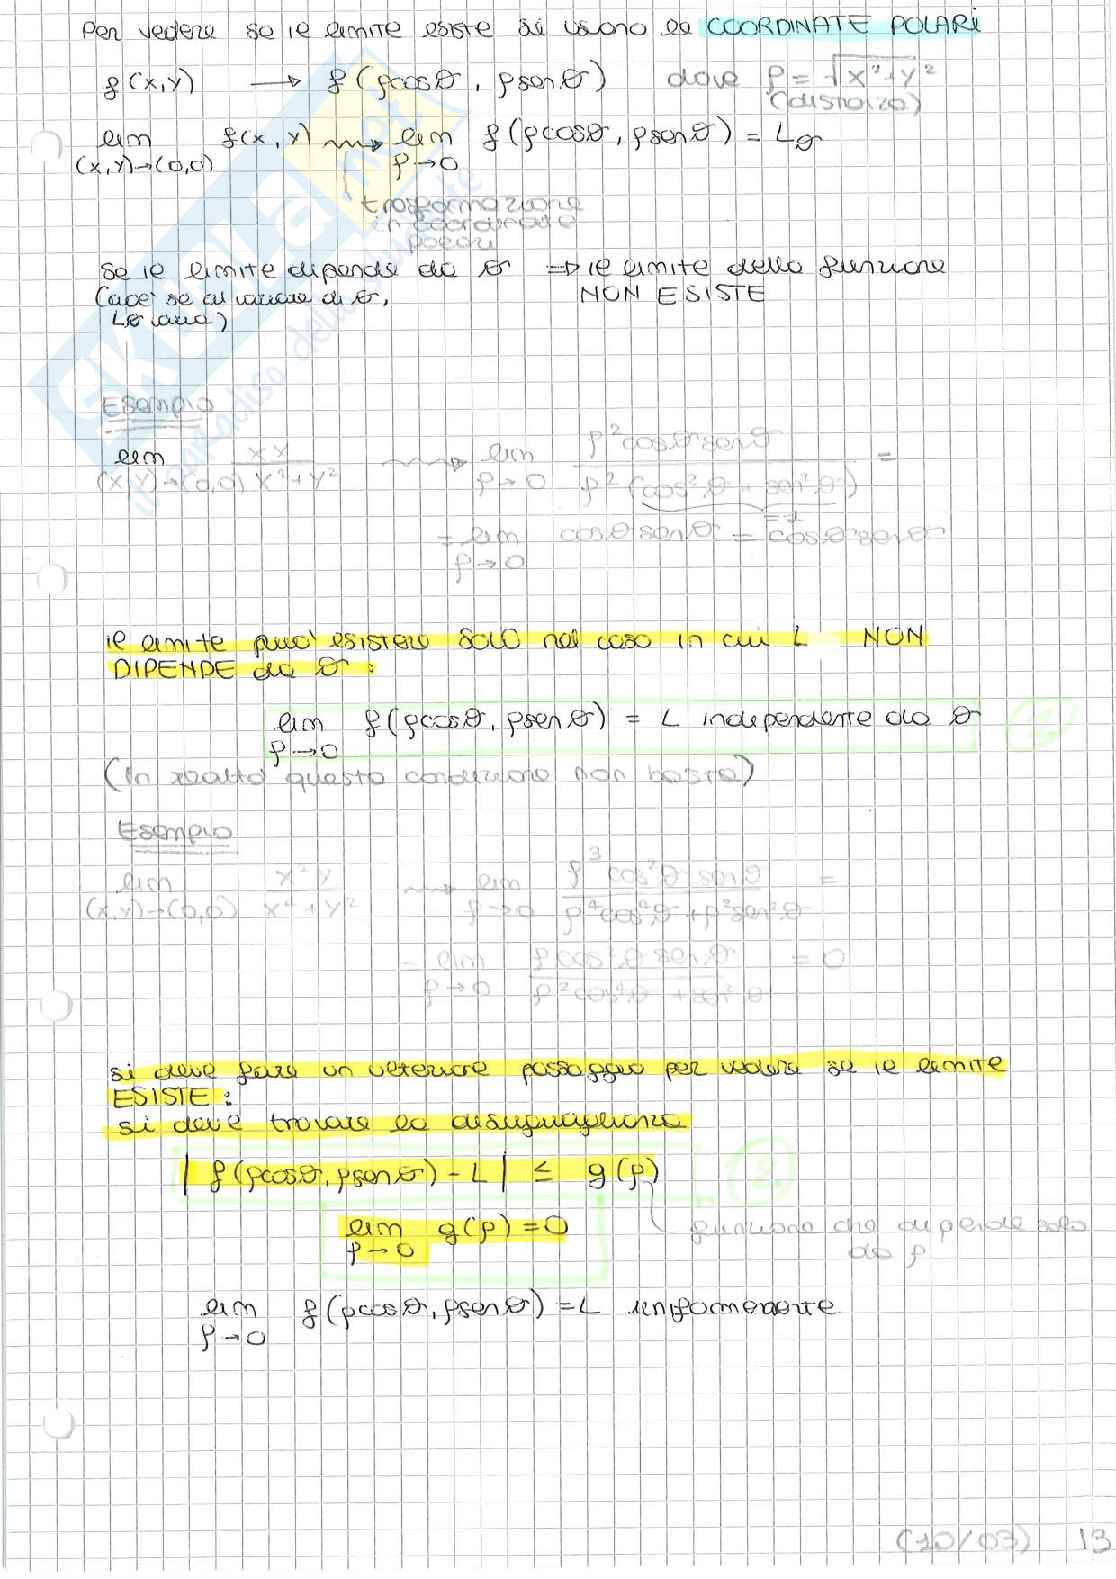 Per vedere se il limite esiste si usano le COORDINATE POLARI
f(x,y) → f(ρcosθ, ρsenθ) dove ρ = √x²+y²
(distanza)
lim f(x,y) ⇝ lim f(ρcosθ, ρsenθ) = Lθ
(x,y)→(0,0) ρ→0
trasformazione
in coordinate
polari
Se il limite dipende da θ ⇒ il limite della funzione
(cioè se al variare di θ, NON ESISTE
Lθ varia)
Esempio
lim xy / x²+y² ⇝ lim ρ²cosθsenθ / ρ²(cos²θ+sen²θ) =
(x,y)→(0,0) ρ→0
=1
= lim cosθsenθ = cosθsenθ
ρ→0
il limite può esistere SOLO nel caso in cui L NON
DIPENDE da θ:
lim f(ρcosθ, ρsenθ) = L indipendente da θ
ρ→0
(In realtà questa condizione non basta)
Esempio
lim x²y / x⁴+y² ⇝ lim ρ³cos²θsenθ / ρ⁴cos⁴θ+ρ²sen²θ =
(x,y)→(0,0) ρ→0
= lim ρcos²θsenθ / ρ²cos⁴θ+sen²θ = 0
ρ→0
si deve fare un ulteriore passaggio per vedere se il limite
ESISTE:
si deve trovare la disuguaglianza
|f(ρcosθ, ρsenθ) - L| ≤ g(ρ)
lim g(ρ) = 0 funzione che dipende solo
ρ→0 da ρ
lim f(ρcosθ, ρsenθ) = L uniformemente
ρ→0
(10/03) 13